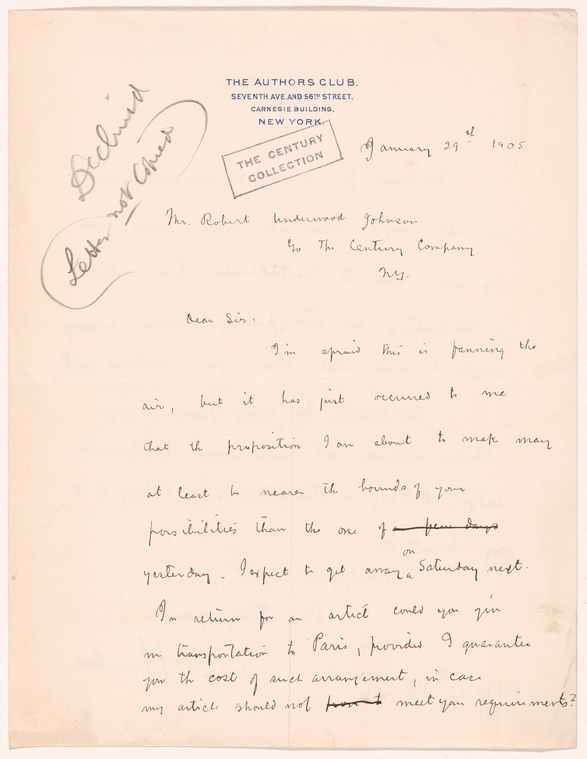 THE AUTHORS CLUB.
SEVENTH AVE. AND 56TH STREET,
CARNEGIE BUILDING,
NEW YORK.
Declined
Letter not copied
THE CENTURY
COLLECTION
January 29th 1905
Mr. Robert Underwood Johnson
c/o The Century Company.
N.Y.
Dear Sir:
I'm afraid this is fanning the
air, but it has just occurred to me
that the proposition I am about to make may
at least be nearer the bounds of your
possibilities than the one of a few days
yesterday. I expect to get away on Saturday next.
In return for an article could you give
me transportation to Paris, provided I guarantee
you the cost of such arrangement, in case
my article should not meet your requirements?